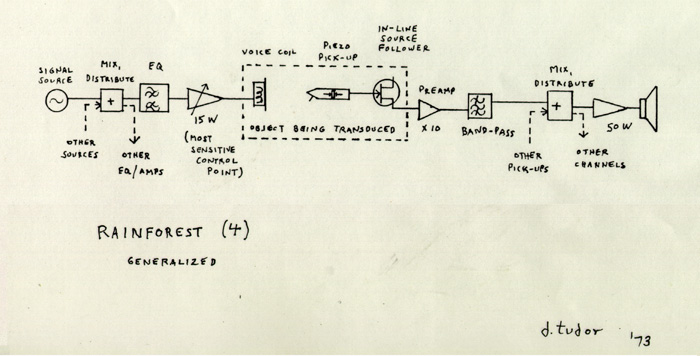 SIGNAL
SOURCE
MIX,
DISTRIBUTE
+
OTHER
SOURCES
OTHER
EQ/AMPS
EQ
15 W
(MOST
SENSITIVE
CONTROL
POINT)
VOICE COIL
PIEZO
PICK-UP
IN-LINE
SOURCE
FOLLOWER
OBJECT BEING TRANSDUCED
PREAMP
X 10
BAND-PASS
MIX,
DISTRIBUTE
+
OTHER
PICK-UPS
OTHER
CHANNELS
50 W
RAINFOREST (4)
GENERALIZED
d. tudor '73